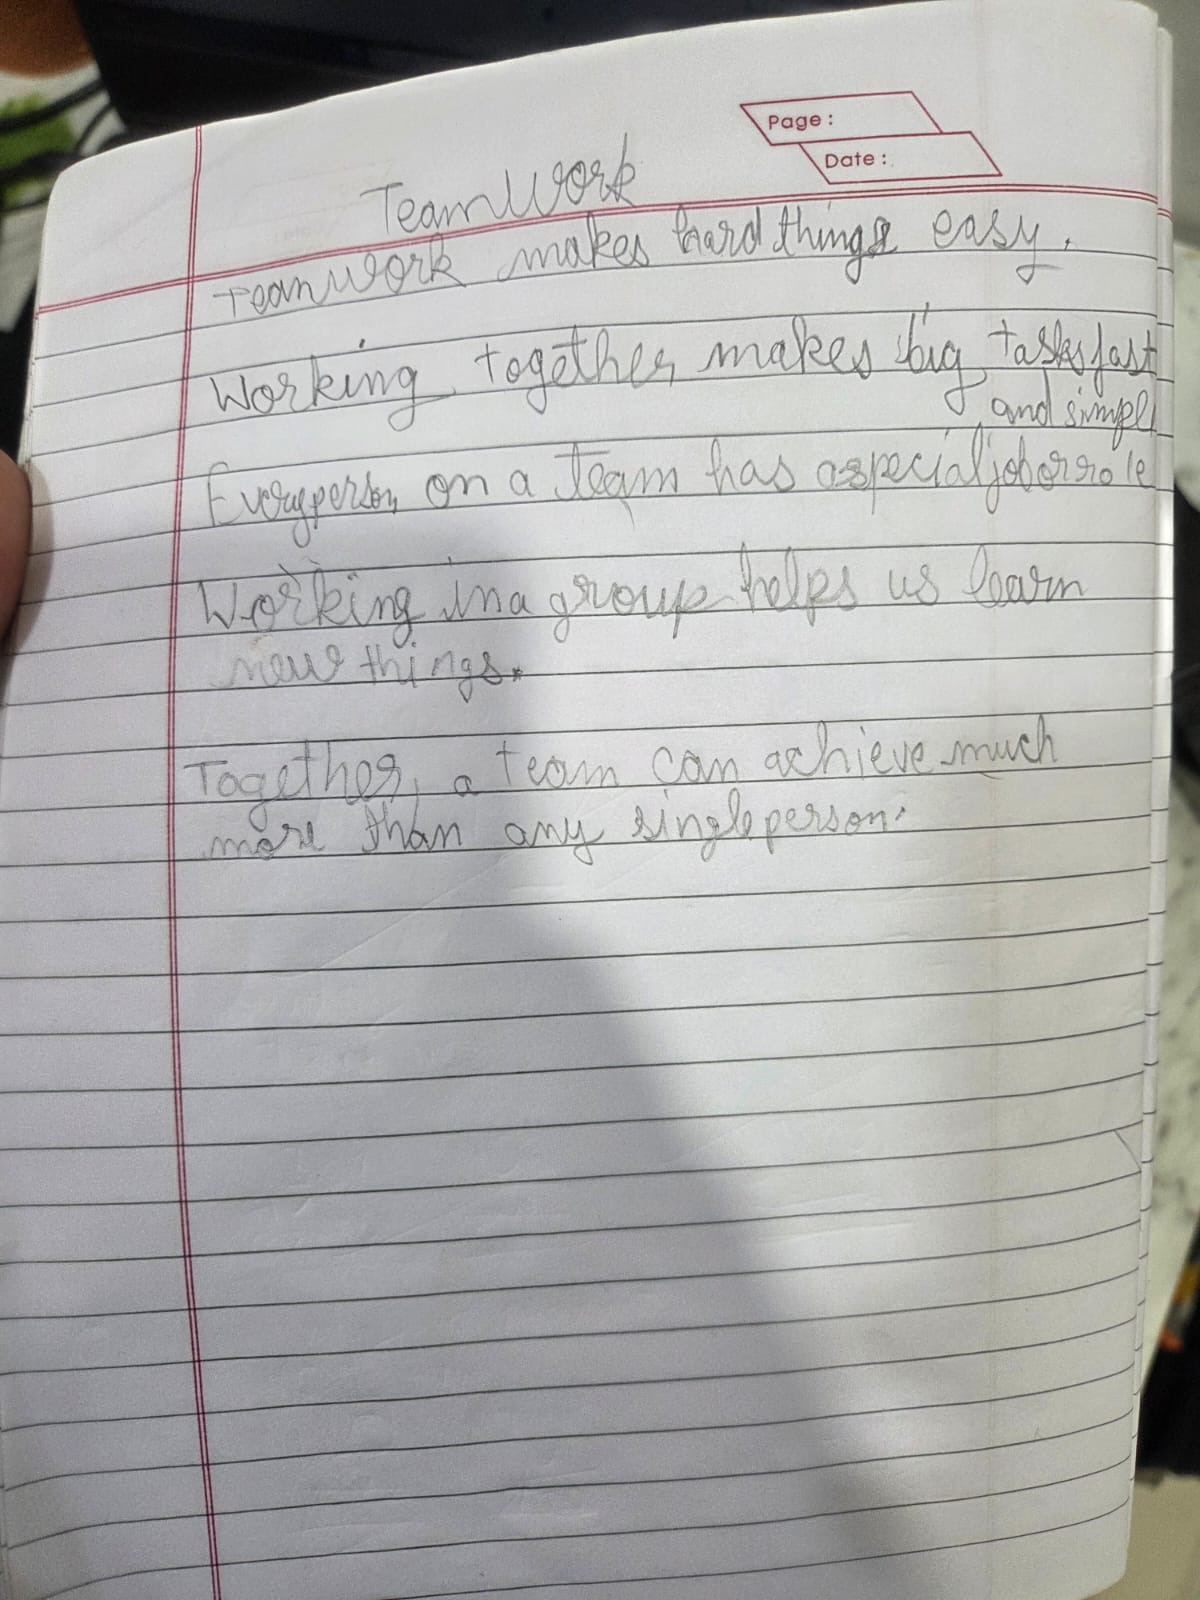 Page :
Date :
TeamWork
Teamwork makes hard things easy.
Working together makes big tasks fast
and simpl
Every person on a team has a special job or role
Working in a group helps us learn
new things.
Together, a team can achieve much
more than any single person.